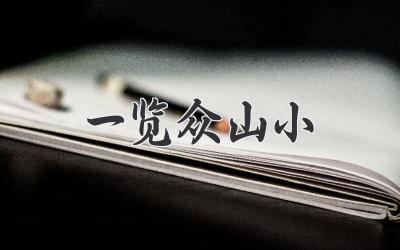 一览众山小